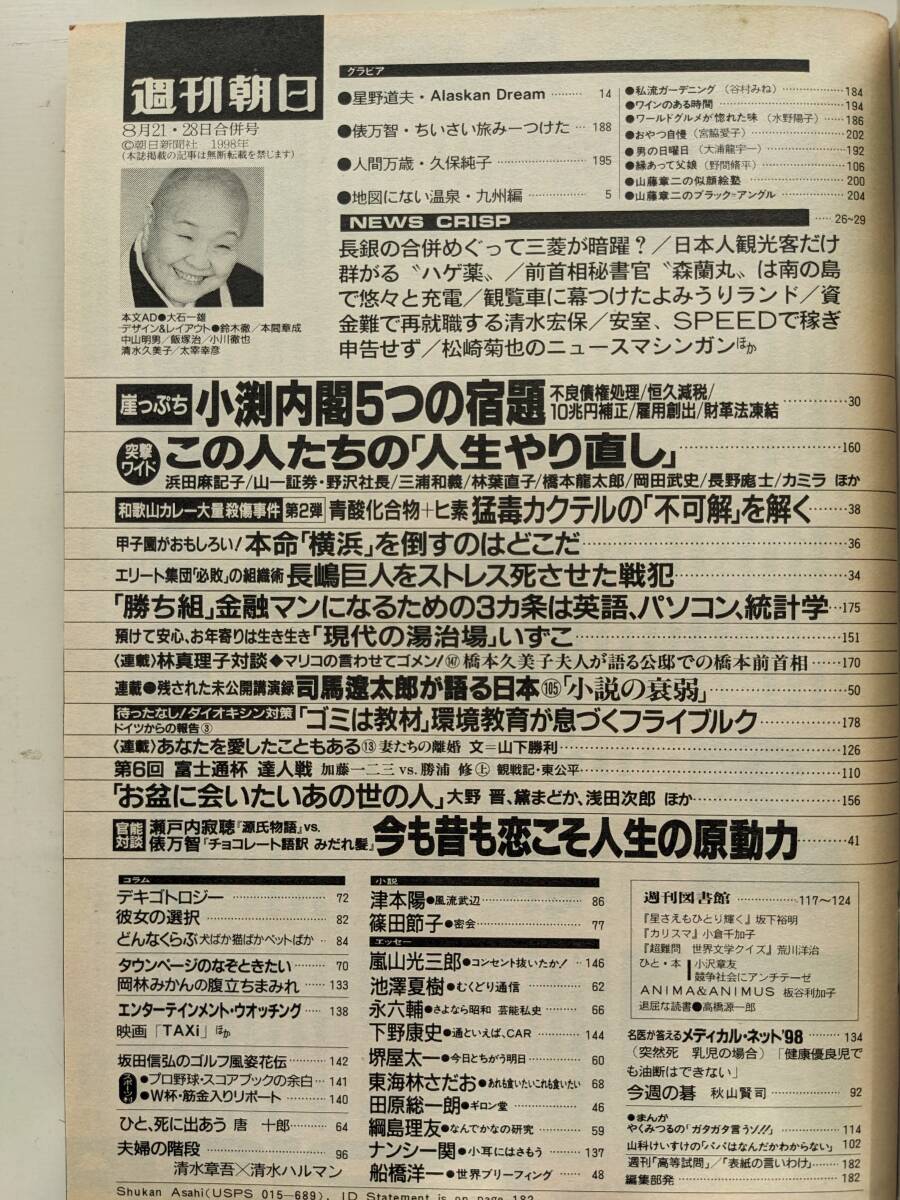 週刊朝日
8月21・28日合併号
©朝日新聞社 1998年
(本誌掲載の記事は無断転載を禁じます)
本文AD●大石一雄
デザイン&レイアウト●鈴木徹/本間章成
中山明男/飯塚治/小川徹也
清水久美子/太宰幸彦
グラビア
●星野道夫・Alaskan Dream ……… 14
●俵万智・ちいさい旅みーつけた … 188
●人間万歳・久保純子 ……… 195
●地図にない温泉・九州編 ……… 5
●私流ガーデニング (谷村みね) ……… 184
●ワインのある時間 ……… 194
●ワールドグルメが惚れた味 (水野陽子) … 186
●おやつ自慢 (宮脇愛子) ……… 202
●男の日曜日 (大浦龍宇一) ……… 192
●縁あって父娘 (野間脩平) ……… 106
●山藤章二の似顔絵塾 ……… 200
●山藤章二のブラック=アングル ……… 204
NEWS CRISP …… 26~29
長銀の合併めぐって三菱が暗躍?/日本人観光客だけ
群がる〝ハゲ薬〟/前首相秘書官〝森蘭丸〟は南の島
で悠々と充電/観覧車に幕つけたよみうりランド/資
金難で再就職する清水宏保/安室、SPEEDで稼ぎ
申告せず/松崎菊也のニュースマシンガンほか
崖っぷち 小渕内閣5つの宿題 不良債権処理/恒久減税/
10兆円補正/雇用創出/財革法凍結 ……… 30
突撃ワイド この人たちの「人生やり直し」 ……… 160
浜田麻記子/山一証券・野沢社長/三浦和義/林葉直子/橋本龍太郎/岡田武史/長野庬士/カミラ ほか
和歌山カレー大量殺傷事件 第2弾 青酸化合物+ヒ素 猛毒カクテルの「不可解」を解く ……… 38
甲子園がおもしろい! 本命「横浜」を倒すのはどこだ ……… 36
エリート集団「必敗」の組織術 長嶋巨人をストレス死させた戦犯 ……… 34
「勝ち組」金融マンになるための3カ条は英語、パソコン、統計学 … 175
預けて安心、お年寄りは生き生き「現代の湯治場」いずこ ……… 151
〈連載〉林真理子対談◆マリコの言わせてゴメン!147 橋本久美子夫人が語る公邸での橋本前首相 …… 170
連載●残された未公開講演録 司馬遼太郎が語る日本105「小説の衰弱」 ……… 50
待ったなし!ダイオキシン対策
ドイツからの報告③ 「ゴミは教材」環境教育が息づくフライブルク ……… 178
〈連載〉あなたを愛したこともある⑬妻たちの離婚 文=山下勝利 ……… 126
第6回 富士通杯 達人戦 加藤一二三 vs. 勝浦 修㊤ 観戦記・東公平 ……… 110
「お盆に会いたいあの世の人」大野 晋、黛まどか、浅田次郎 ほか ……… 156
官能対談 瀬戸内寂聴『源氏物語』vs.
俵万智『チョコレート語訳 みだれ髪』 今も昔も恋こそ人生の原動力 ……… 41
コラム
デキゴトロジー ……… 72
彼女の選択 ……… 82
どんなくらぶ 犬ばか猫ばかペットばか … 84
タウンページのなぞときたい ……… 70
岡林みかんの腹立ちまみれ …… 133
エンターテインメント・ウオッチング …… 138
映画「TAXi」ほか
坂田信弘のゴルフ風姿花伝 …… 142
●プロ野球・スコアブックの余白 … 141
●W杯・筋金入りリポート ……… 140
ひと、死に出あう 唐 十郎 …… 64
夫婦の階段 ……… 96
清水章吾×清水ハルマン
小説
津本陽●風流武辺 ……… 86
篠田節子●密会 ……… 77
エッセー
嵐山光三郎●コンセント抜いたか! … 146
池澤夏樹●むくどり通信 ……… 62
永六輔●さよなら昭和 芸能私史 ……… 66
下野康史●通といえば、CAR ……… 144
堺屋太一●今日とちがう明日 ……… 60
東海林さだお●あれも食いたいこれも食いたい 68
田原総一朗●ギロン堂 ……… 46
綱島理友●なんでかなの研究 ……… 59
ナンシー関●小耳にはさもう ……… 137
船橋洋一●世界ブリーフィング …… 48
週刊図書館 ……… 117~124
『星さえもひとり輝く』坂下裕明
『カリスマ』小倉千加子
『超難問 世界文学クイズ』荒川洋治
ひと・本 小沢章友
競争社会にアンチテーゼ
ANIMA&ANIMUS 板谷利加子
退屈な読書●高橋源一郎
名医が答えるメディカル・ネット'98 ……… 134
(突然死 乳児の場合)「健康優良児で
も油断はできない」
今週の碁 秋山賢司 ……… 92
●まんが
やくみつるの「ガタガタ言うゾ!!」 ……… 114
山科けいすけの「パパはなんだかわからない」 102
週刊「高等試問」/「表紙の言いわけ」 …… 182
編集部発 ……… 182
Shukan Asahi(USPS 015—689). ID Statement is on page 182